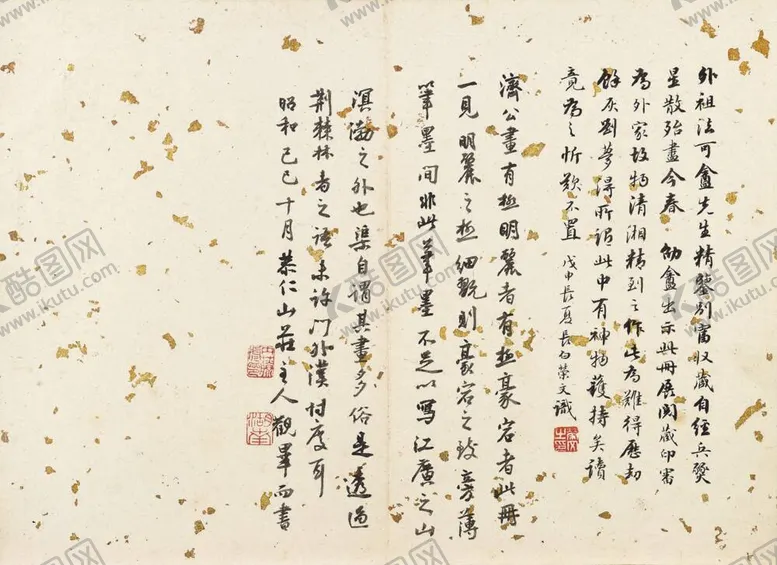 外祖法可盦先生精鑒別富收藏自經兵燹
星散殆盡今春 劬盦出示此冊展閱藏印審
為外家故物清湘精到之作此為難得歷劫
餘灰劉夢得所謂此中有神物護持矣讀
竟為之忻歎不置 戊申長夏長白榮文識
濟公畫有極明麗者有極豪宕者此冊
一見明麗之極細翫則豪宕之致旁薄
筆墨間非此筆墨不足以寫江廣之山
溟渤之外也渠自謂其畫多俗是透過
荆棘林者之語未許門外漢忖度耳
昭和己巳十月恭仁山莊主人觀畢而書
昵图网 www.ikutu.com